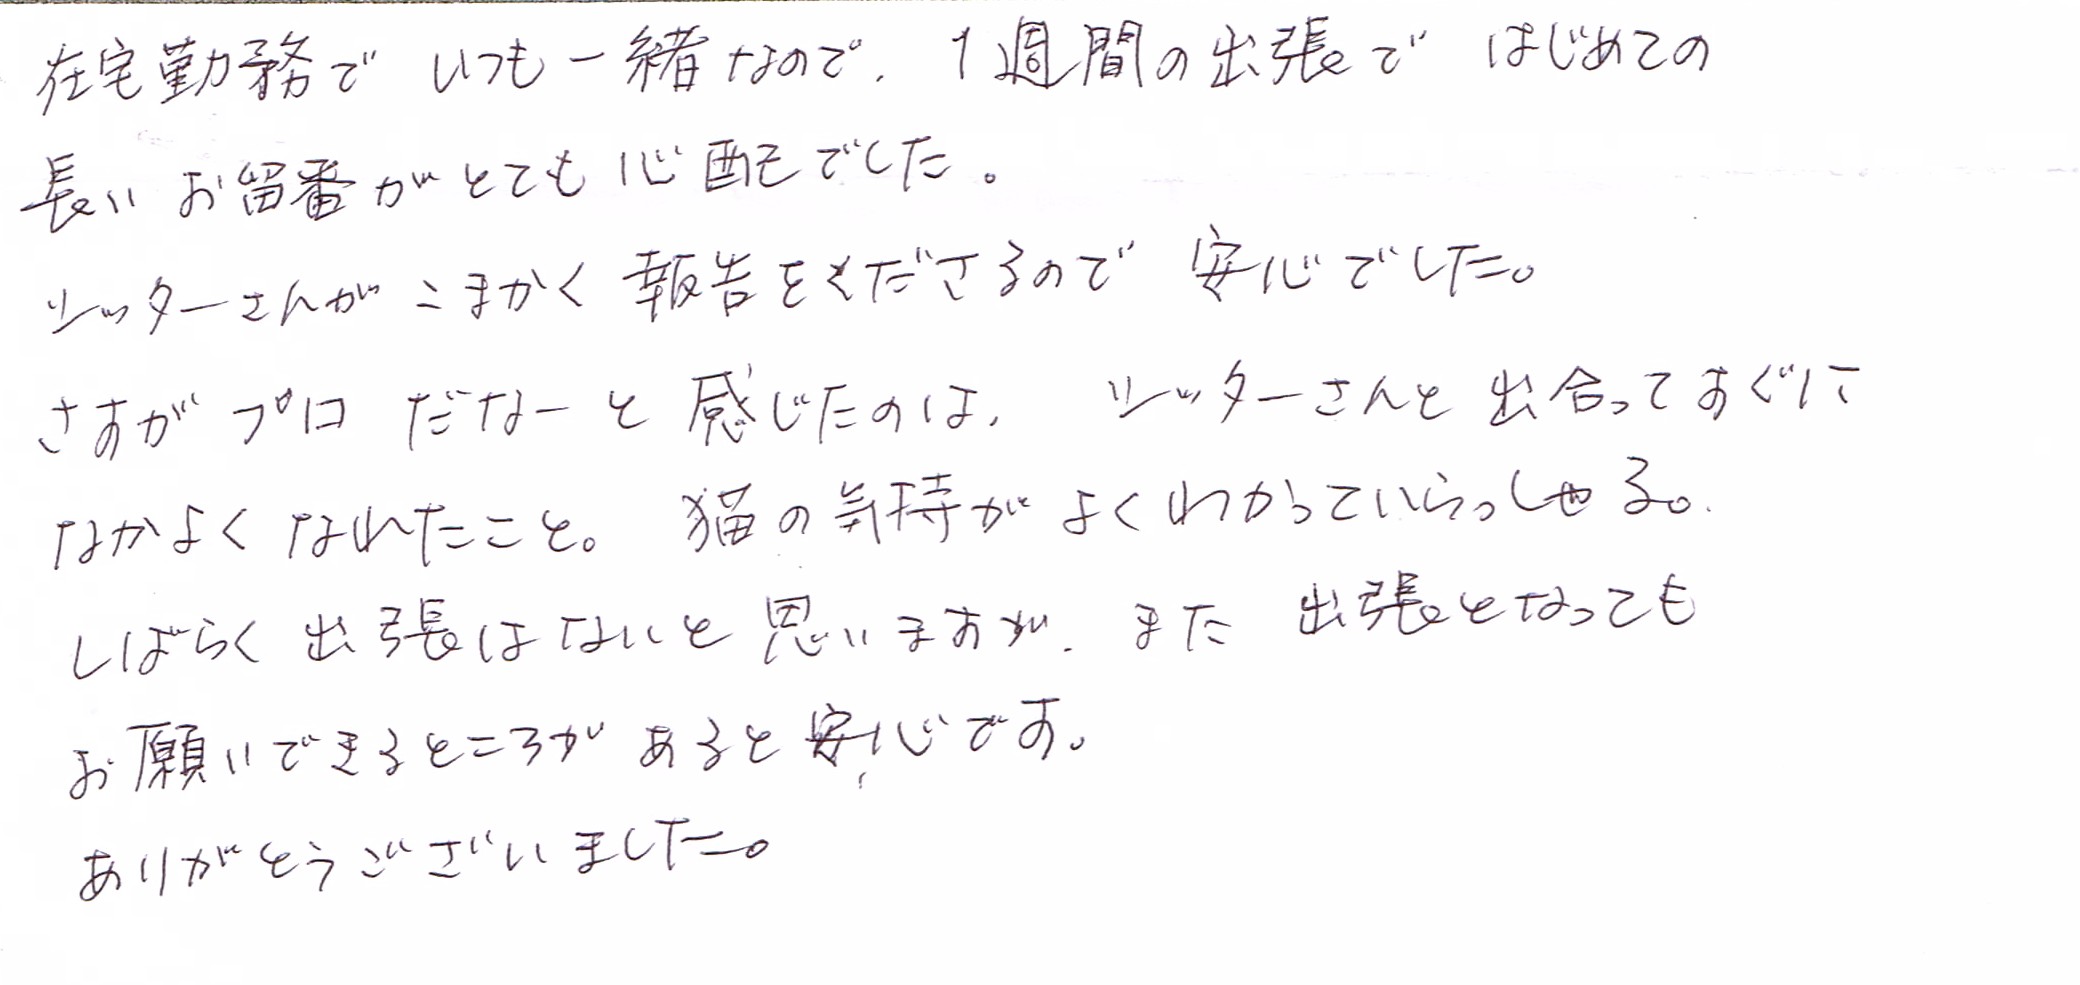 在宅勤務で いつも一緒なので、1週間の出張で はじめての
長い お留番がとても心配でした。
シッターさんがこまかく報告をくださるので 安心でした。
さすが プロ だなーと感じたのは、 シッターさんと出合ってすぐに
なかよくなれたこと。 猫の気持がよくわかっていらっしゃる。
しばらく出張はないと思いますが、また 出張となっても
お願いできるところがあると安心です。
ありがとうございました。